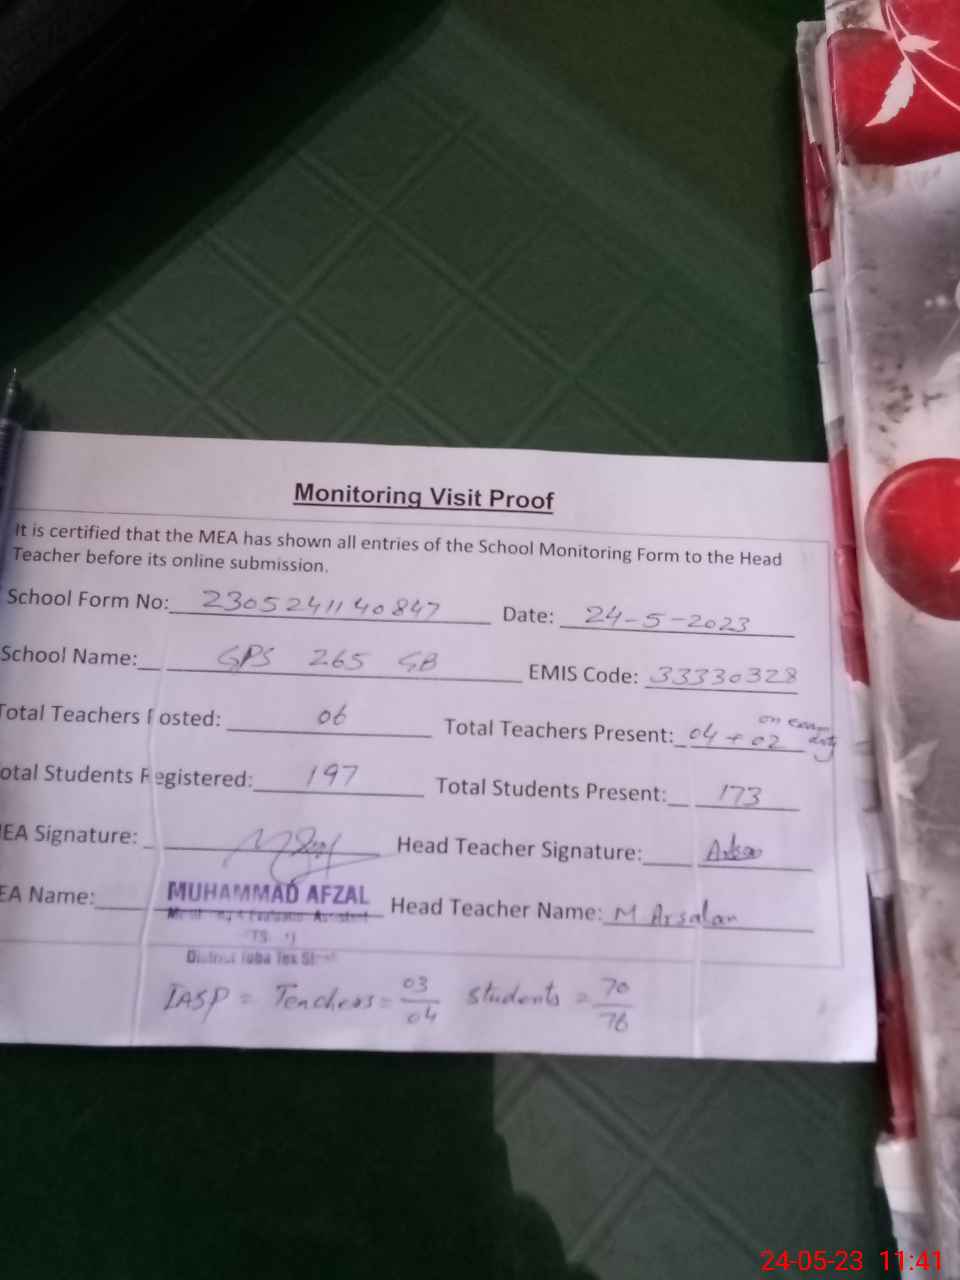 Monitoring Visit Proof
It is certified that the MEA has shown all entries of the School Monitoring Form to the Head
Teacher before its online submission.
School Form No: 2305241140847 Date: 24-5-2023
School Name: GPS 265 GB EMIS Code: 33330328
Total Teachers Posted: 06 Total Teachers Present: 04 + 02 on exam duty
otal Students Registered: 197 Total Students Present: 173
EA Signature: Head Teacher Signature:
EA Name: MUHAMMAD AFZAL Head Teacher Name: M Arsalan
District Toba Tek
IASP = Teachers = 03/04 students = 70/76
24-05-23 11:41